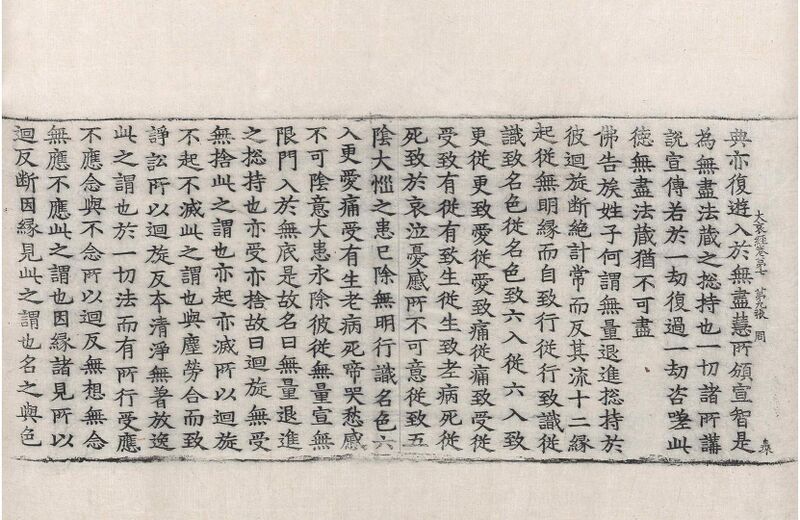 典亦復遊入於無盡慧所頒宣智是
大哀經卷第七　第九張　周
為無盡法藏之揔持也一切諸所講
說宣傳若於一劫復過一劫咨嗟此
德無盡法藏猶不可盡
佛告族姓子何謂無量退進揔持於
彼迴旋斷絶計常而反其流十二縁
起從無明縁而自致行從行致識從
識致名色從名色致六入從六入致
更從更致愛從愛致痛從痛致受從
受致有從有致生從生致老病死從
死致於哀泣憂慼所不可意從致五
陰大惱之患已除無明行識名色六
入更愛痛受有生老病死啼哭愁慼
不可陰意大患永除彼從無量宣無
限門入於無底是故名曰無量退進
之揔持也亦受亦捨故曰迴旋無受
無捨此之謂也亦起亦滅所以迴旋
不起不滅此之謂也與塵勞合而致
諍訟所以迴旋反本清淨無著放逸
此之謂也於一切法而有所行受應
不應念與不念所以迴反無想無念
無應不應此之謂也因縁諸見所以
迴反断因縁見此之謂也名之與色